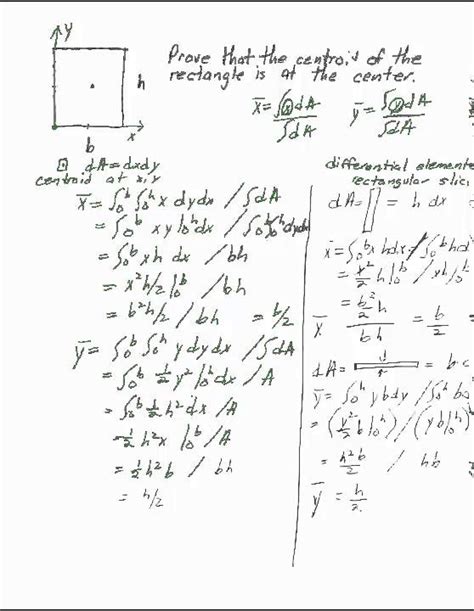 y
Prove that the centroid of the
rectangle is at the center.
h
x̄ = ∫x dA / ∫dA   ȳ = ∫y dA / ∫dA
x
b
□ dA = dxdy
centroid at x, y
x̄ = ∫₀ᵇ ∫₀ʰ x dy dx / ∫dA
= ∫₀ᵇ x y|₀ʰ dx / ∫₀ᵇ∫₀ʰ dy dx
= ∫₀ᵇ x h dx / bh
= x² h/2 |₀ᵇ / bh
= b² h/2 / bh = b/2
ȳ = ∫₀ᵇ ∫₀ʰ y dy dx / ∫dA
= ∫₀ᵇ ½ y² |₀ʰ dx / A
= ∫₀ᵇ ½ h² dx / A
= ½ h² x |₀ᵇ / A
= ½ h² b / bh
= h/2
differential elemente
rectangular slic
dA = = h dx
x̄ = ∫₀ᵇ x h dx / ∫₀ᵇ h d
= x²/2 h|₀ᵇ / x h|₀ᵇ
x̄ = b²/2 h / bh = b/2
dA = = b
ȳ = ∫₀ʰ y b dy / ∫₀ʰ b
= (y²/2 b|₀ʰ) / (y b|₀ʰ)
= h² b/2 / hb
ȳ = h/2